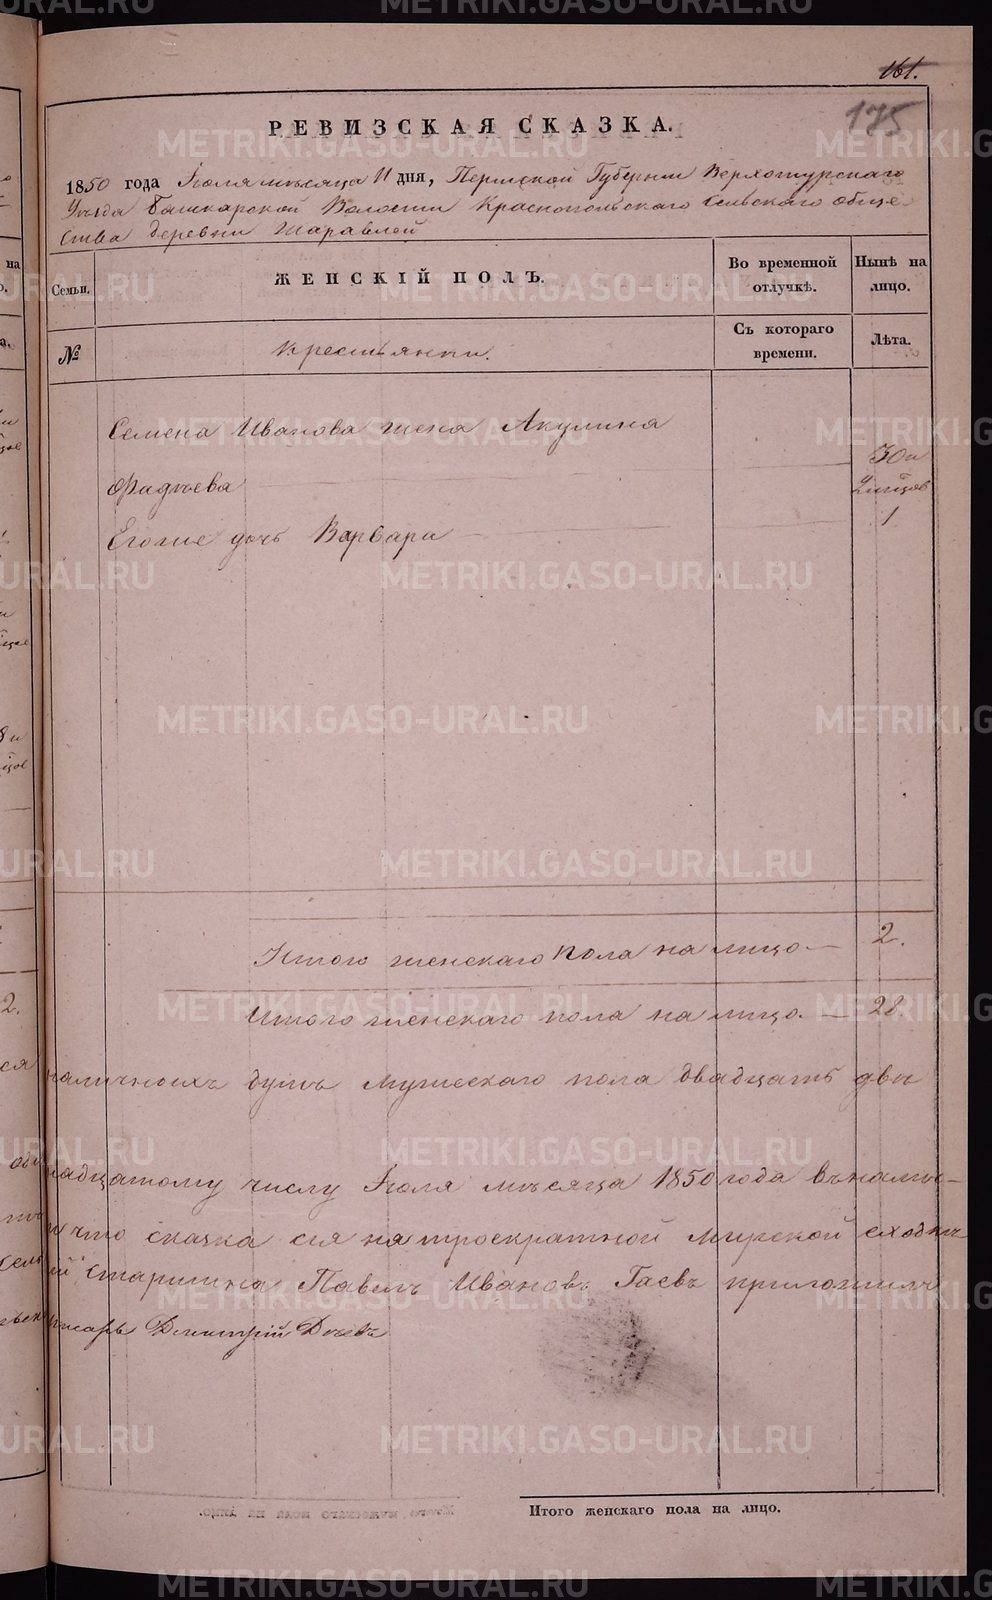 161.
175
РЕВИЗСКАЯ СКАЗКА.
1850 года Іюля мѣсяца 11 дня, Пермской Губерніи Верхотурскаго
Уѣзда Башкарской Волости Краснопольскаго сельскаго обще-
ства деревни Шаравлей
Семьи.
ЖЕНСКІЙ ПОЛЪ.
Во временной отлучкѣ.
Нынѣ на лицо.
№
Крестьянки.
Съ котораго времени.
Лѣта.
Семена Иванова жена Акулина
Фадѣева 30 и
Егоже дочь Варвара 1
Итого женскаго пола на лицо — 2.
Итого женскаго пола на лицо. — 28
наличныхъ душъ мужескаго пола двадцать двѣ
надцатому числу Іюля мѣсяца 1850 года въ налич-
и что сказка сія на троекратной мирской сходкѣ
Старшина Павелъ Ивановъ Гаевъ приложилъ
писарь Дмитрій
Итого женскаго пола на лицо.
METRIKI.GASO-URAL.RU